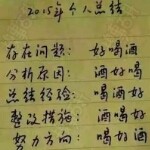 2015年个人总结
存在问题: 好喝酒
分析原因: 酒好喝
总结经验: 喝酒好
整改措施: 酒喝好
努力方向: 喝好酒